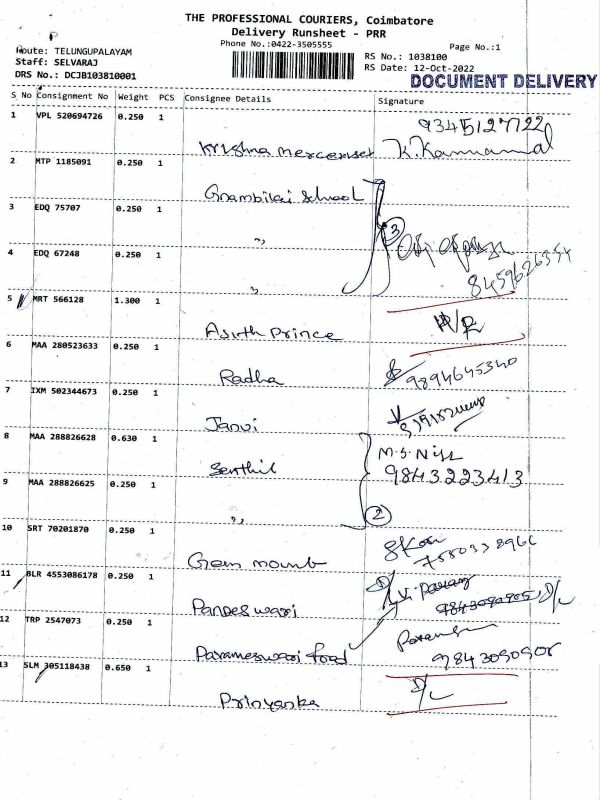 THE PROFESSIONAL COURIERS, Coimbatore
Delivery Runsheet - PRR
Phone No.:0422-3505555
Page No.:1
Route: TELUNGUPALAYAM
Staff: SELVARAJ
DRS No.: DCJB103810001
RS No.: 1038100
RS Date: 12-Oct-2022
DOCUMENT DELIVERY
S No Consignment No Weight PCS Consignee Details Signature
1 VPL 520694726 0.250 1
9345127722
Krishna K. Kannamal
2 MTP 1185091 0.250 1
Gnambikai School
3 EDQ 75707 0.250 1
〃 3
4 EDQ 67248 0.250 1
〃
5 MRT 566128 1.300 1
Asith Prince
6 MAA 280523633 0.250 1
Radha 9894645340
7 IXM 502344673 0.250 1
Janvi
8 MAA 288826628 0.630 1 M.S.
Senthil 9843223413
9 MAA 288826625 0.250 1
〃 2
10 SRT 70201870 0.250 1
Gem
11 BLR 4553086178 0.250 1
D/L
12 TRP 2547073 0.250 1
Parameswari food 9843090905
13 SLM 305118438 0.650 1
Priyanka D/L